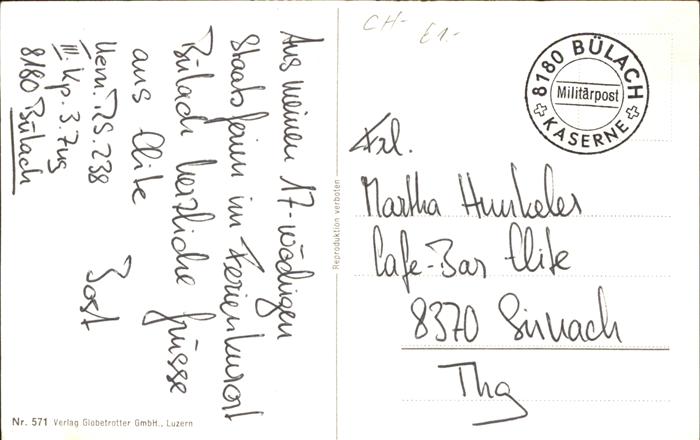 CH-
£1.-
8180 BÜLACH
Militärpost
KASERNE
Aus meinen 17-wöchigen
Staatsferien im Ferienkurort
Bülach herzliche Grüsse
aus Elite
Uem. RS. 238
III. Kp. 3. Zug
8180 Bülach
Frl.
Martha Hunkeler
Cafe-Bar Elite
8370 Sirnach
Thg
Reproduktion verboten
Nr. 571 Verlag Globetrotter GmbH., Luzern